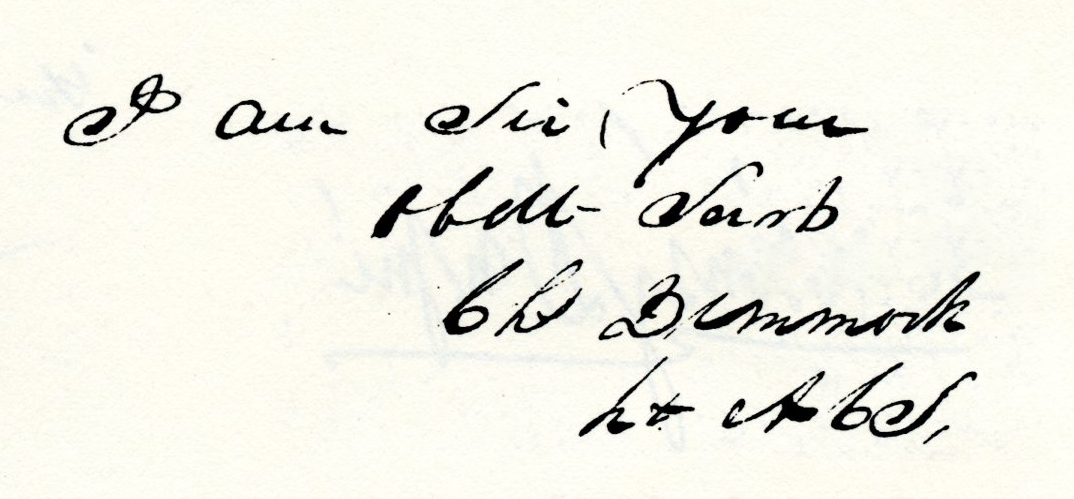 I am Sir, Your
Obdt Servt
Chs Dimmock
Lt ACS,